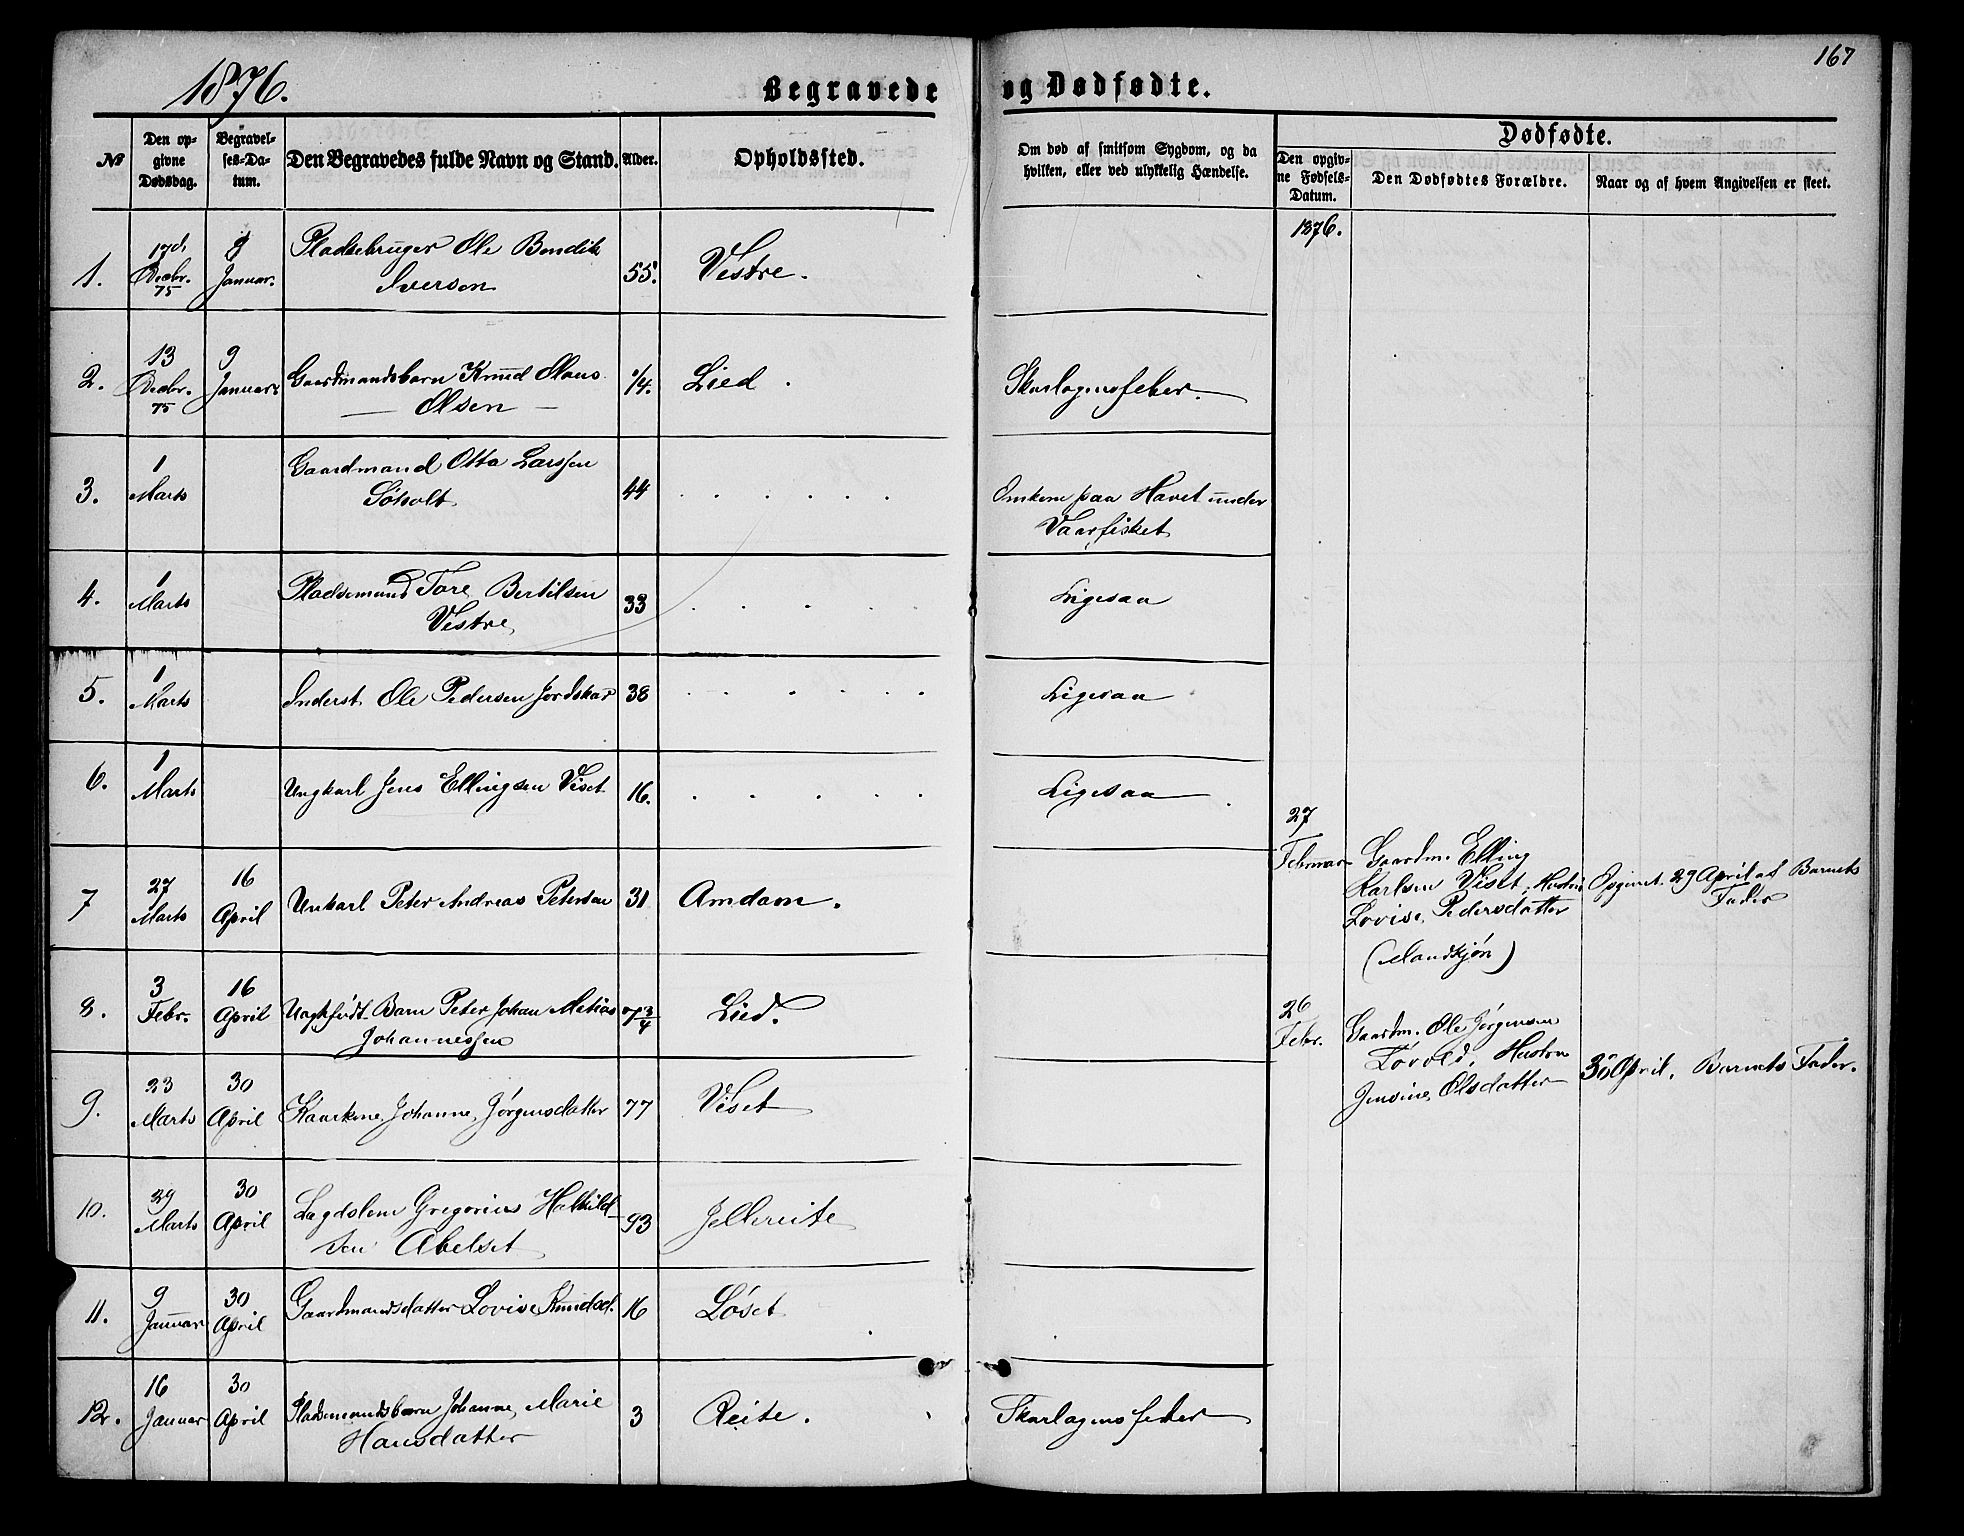 167
1876.
Begravede og Dødfødte.
No
Den opgivne Dødsdag.
Begravelses-Datum.
Den Begravedes fulde Navn og Stand.
Alder.
Opholdssted.
Om død af smitsom Sygdom, og da hvilken, eller ved ulykkelig Hændelse.
Dødfødte.
Den opgivne Fødsels-Datum.
Den Dødfødtes Forældre.
Naar og af hvem Angivelsen er skeet.
1876.
1. 17d Decbr. 75 Januar. Pladsebruger Ole Bendik
Iversen 55. Vestre.
2. 13 Decbr. 75 9 Januar Gaardmandsbarn Knud
Olsen 1/4. Lied. Skarlagensfeber.
3. 1 Marts Gaardmand Otto Larssen
Søholt 44 Omkom paa Havet under
Vaarfisket
4. 1 Marts Pladsemand Tore Bertilsen
Vestre 33 Ligesaa
5. 1 Marts Inderst Ole Pedersen Jordskar 38 Ligesaa
6. 1 Marts Ungkarl Jens Ellingsen Viset 16. Ligesaa
7 27 Marts 16 April Unkarl Peter Andreas Petersen 31 Amdam.
8. 3 Febr. 16 April Uægtfødt Barn Peter Johan Matias
Johannessen 3/4 Lied.
9. 23 Marts 30 April Kaarkone Johanne Jørgensdatter 77 Viset
10. 29 Marts 30 April Lægdslem Gregorius Halkild-
sen Abelset 93 Jellereite
11. 9 Januar 30 April Gaardmandsdatter Lovise Knudsd. 16 Løset
12. 16 Januar 30 April Pladsmandsbarn Johanne Marie
Hansdatter 3 Reite. Skarlagensfeber
27
Februar Gaardm. Elling
Karlsen Viset, Hustru Opgivet 29 April af Barnets
Lovise Pedersdatter Fader
(Mandkjøn)
26
Febr. Gaardm. Ole Jørgensen
Løvold, Hustru
Jensine Olsdatter 30 April, Barnets Fader.